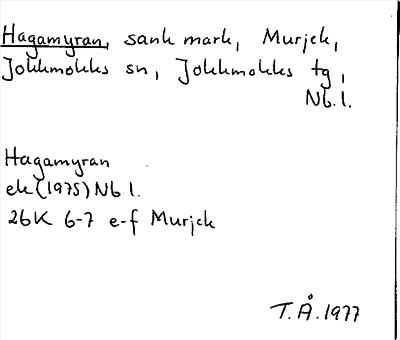 Hagamyran, sank mark, Murjek,
Jokkmokks sn, Jokkmokks tg,
Nb.l.
Hagamyran
ek (1975) Nb l.
26K 6-7 e-f Murjek
T.Å. 1977